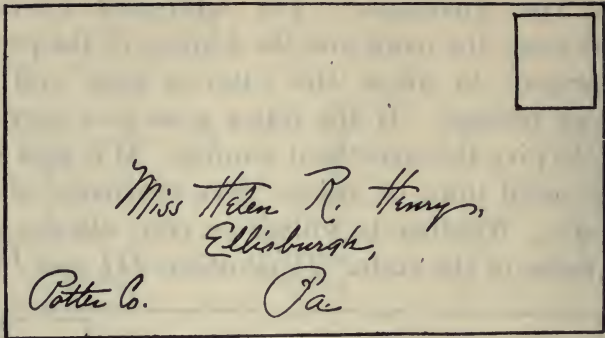 Miss Helen R. Henry,
Ellisburgh,
Potter Co. Pa.